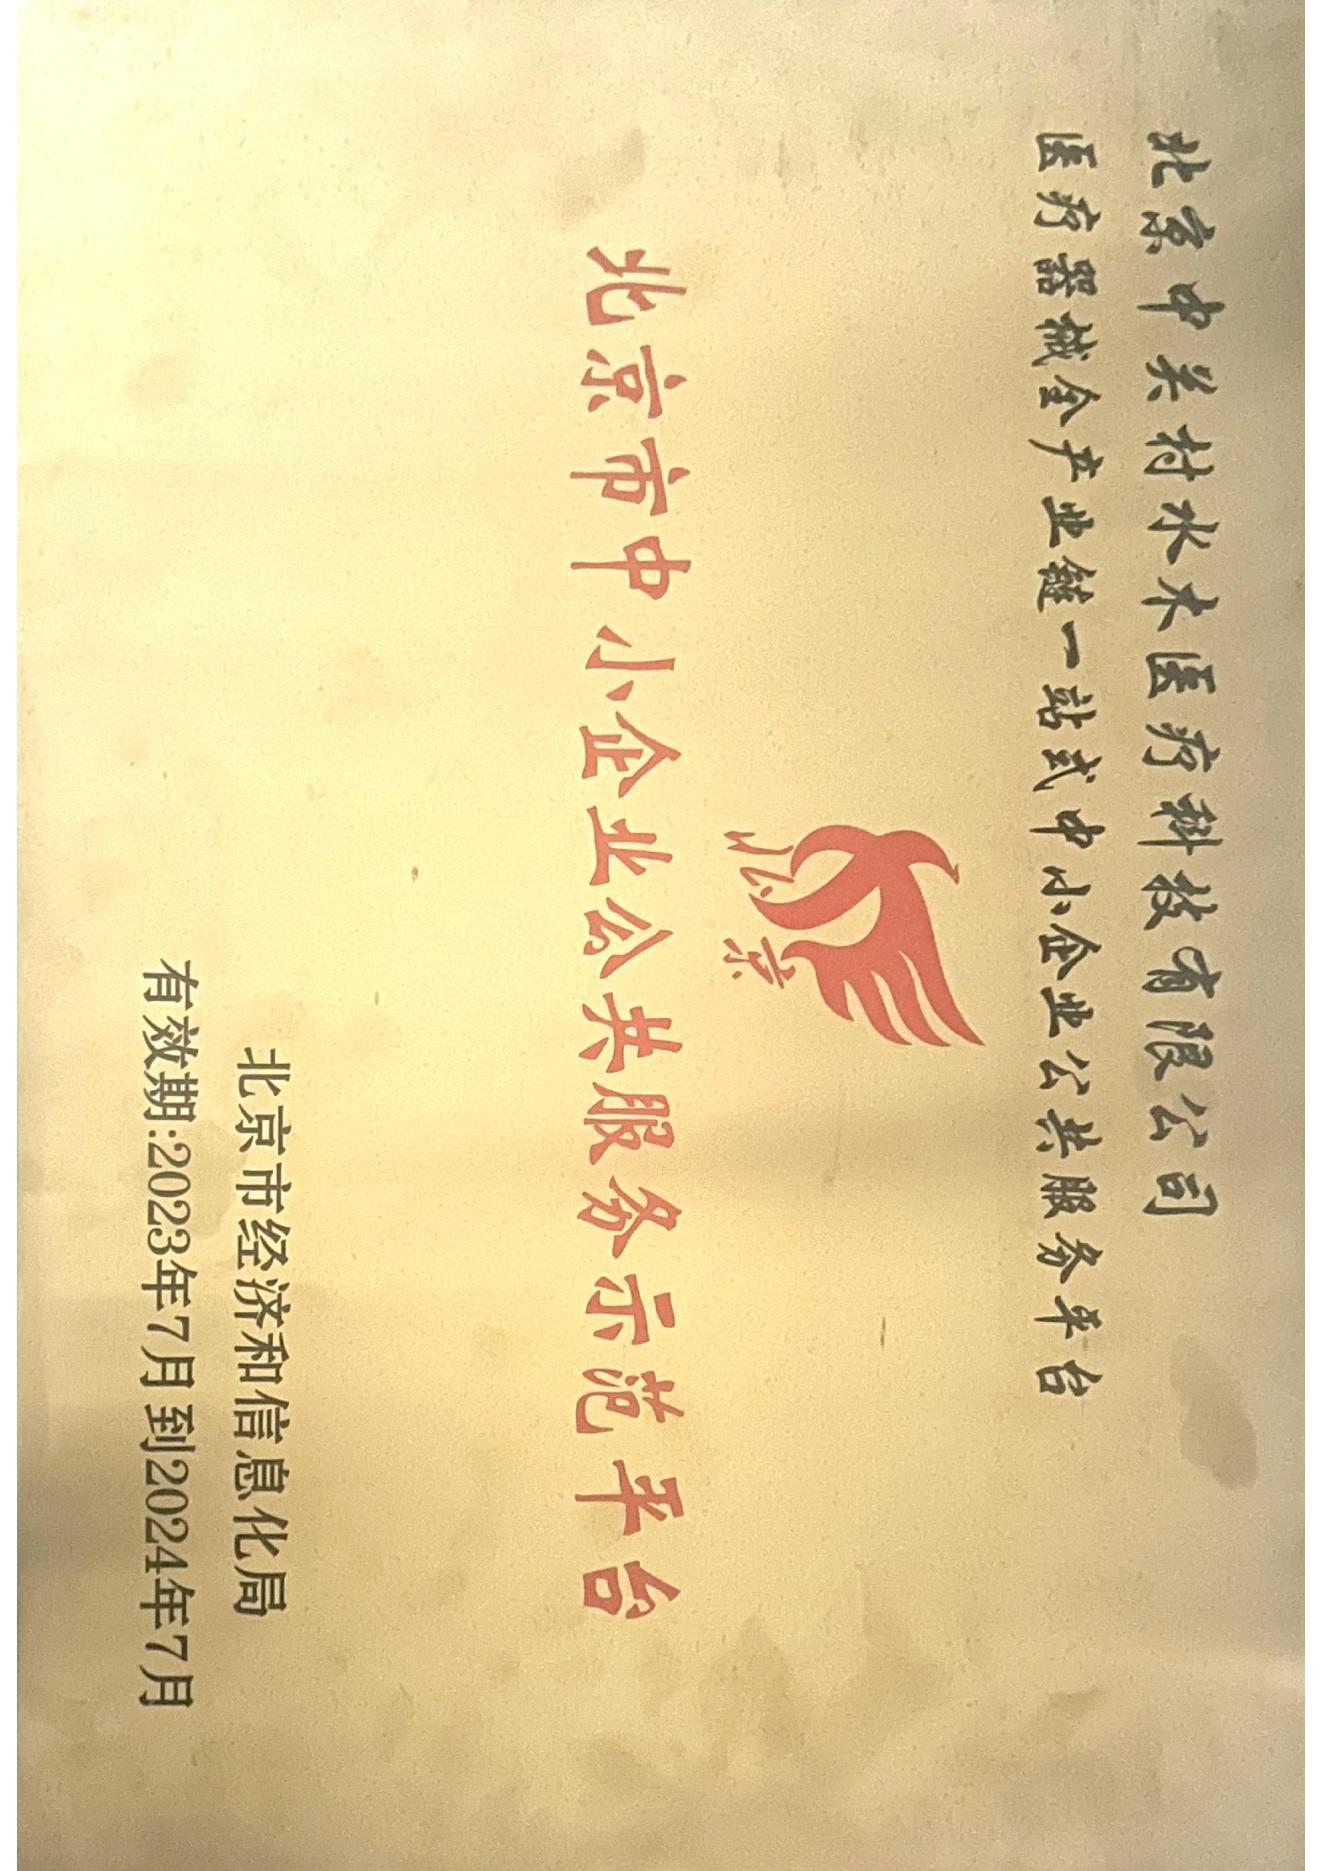 北京中关村水木医疗科技有限公司
医疗器械全产业链一站式中小企业公共服务平台
北京
北京市中小企业公共服务示范平台
北京市经济和信息化局
有效期:2023年7月到2024年7月